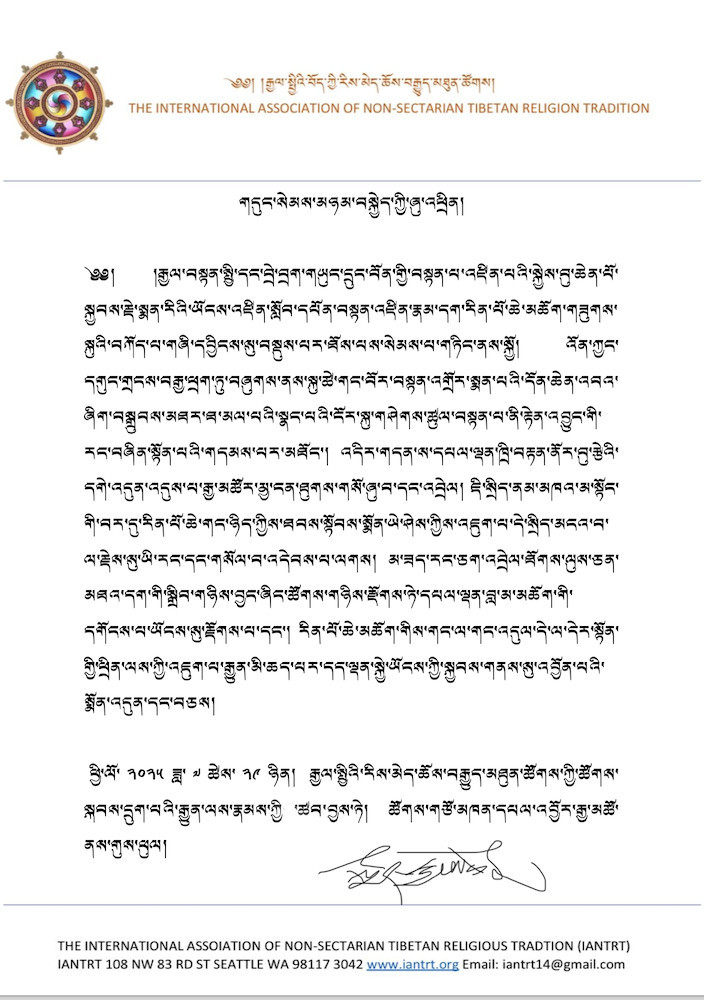 ༄༅། །རྒྱལ་སྤྱིའི་བོད་ཀྱི་རིས་མེད་ཆོས་བརྒྱུད་མཐུན་ཚོགས།
THE INTERNATIONAL ASSOCIATION OF NON-SECTARIAN TIBETAN RELIGION TRADITION
གདུང་སེམས་མཉམ་བསྐྱེད་ཀྱི་ཞུ་འཕྲིན།
༄༅། །རྒྱལ་བསྟན་སྤྱི་དང་བྲེ་བྲག་གཡུང་དྲུང་བོན་གྱི་བསྟན་པ་འཛིན་པའི་སྐྱེས་བུ་ཆེན་པོ་
སྐྱབས་རྗེ་སྨན་རིའི་ཡོངས་འཛིན་སློབ་དཔོན་བསྟན་འཛིན་རྣམ་དག་རིན་པོ་ཆེ་མཆོག་གཟུགས་
སྐུའི་བཀོད་པ་གཞི་དབྱིངས་སུ་བསྡུས་པར་ཐོས་པས་སེམས་པ་གཏིང་ནས་སྐྱོ། འོན་ཀྱང་
དགུང་གྲངས་བརྒྱ་ཕྲག་ཏུ་བཞུགས་ནས་སྐུ་ཚེ་གང་བོར་བསྟན་འགྲོར་སྨན་པའི་དོན་ཆེན་འབའ་
ཞིག་བསྒྲུབས་མཐར་ཐ་མལ་པའི་སྣང་པའི་ངོར་སྐུ་གཤེགས་ཚུལ་བསྟན་པ་ནི་རྟེན་འབྱུང་གི་
རང་བཞིན་སྟོན་པའི་གདམས་པར་མཐོང་། འདིར་གདན་ས་དཔལ་ལྡན་ཁྲི་བརྟན་ནོར་བུ་རྩེའི་
དགེ་འདུན་འདུས་པ་རྒྱ་མཚོར་མྱ་ངན་ཐུགས་གསོ་ཞུ་བ་དང་འབྲེལ། ཇི་སྲིད་ནམ་མཁའ་མ་སྟོང་
གི་བར་དུ་རིན་པོ་ཆེ་གང་ཉིད་ཀྱིས་ཐབས་སྟོབས་སྨོན་ཡེ་ཤེས་ཀྱིས་འཇུག་པ་དེ་སྲིད་མངའ་བ་
ལ་རྗེས་སུ་ཡི་རང་དང་གསོལ་བ་འདེབས་པ་ལགས། མ་ཟད་རང་ཅག་འབྲེལ་ཐོགས་ལུས་ཅན་
མཐའ་དག་གི་སྒྲིབ་གཉིས་བྱང་ཞིང་ཚོགས་གཉིས་རྫོགས་ཏེ་དཔལ་ལྡན་བླ་མ་མཆོག་གི་
དགོངས་པ་ཡོངས་སུ་རྫོགས་པ་དང་། རིན་པོ་ཆེ་མཆོག་གིས་གང་ལ་གང་འདུལ་དེ་ལ་དེར་སྟོན་
གྱི་ཕྲིན་ལས་ཀྱི་འཇུག་པ་རྒྱུན་མི་ཆད་པར་དད་ལྡན་སྐྱེ་ཡོངས་ཀྱི་སྐྱབས་གནས་སུ་འབྱོན་པའི་
སྨོན་འདུན་དང་བཅས།
ཕྱི་ལོ་ ༢༠༢༥ ཟླ་ ༧ ཚེས་ ༢༩ ཉིན། རྒྱལ་སྤྱིའི་རིས་མེད་ཆོས་བརྒྱུད་མཐུན་ཚོགས་ཀྱི་ཚོགས་
སྐབས་དྲུག་པའི་རྒྱུན་ལས་རྣམས་ཀྱི་ ཚབ་བྱས་ཏེ། ཚོགས་གཙོ་མཁན་དཔལ་འབྱོར་རྒྱ་མཚོ་
ནས་གུས་ཕུལ།
THE INTERNATIONAL ASSOIATION OF NON-SECTARIAN TIBETAN RELIGIOUS TRADTION (IANTRT)
IANTRT 108 NW 83 RD ST SEATTLE WA 98117 3042 www.iantrt.org Email: iantrt14@gmail.com